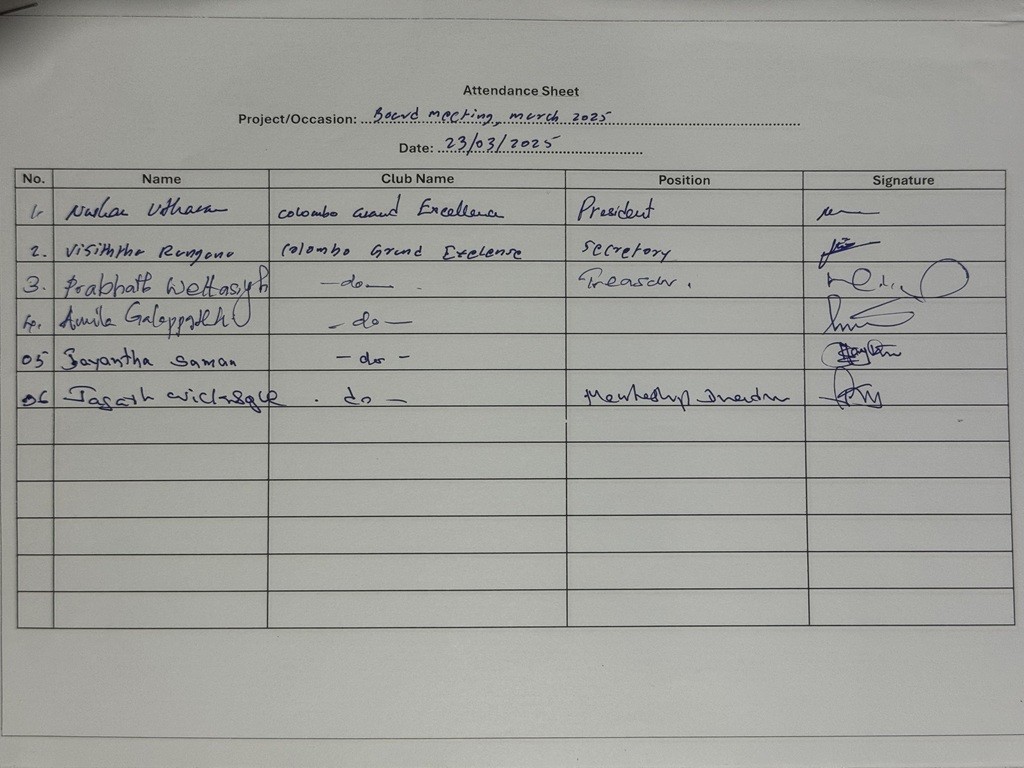 Attendance Sheet
Project/Occasion: Board meeting, march 2025
Date: 23/03/2025
No. Name Club Name Position Signature
1. Colombo Grand Excellence President
2. Visiththa Rangana Colombo Grand Exclense Secretory
3. Prabhath Wettasigh -do-
4. Amila Galappaththi - do -
05 Jayantha Saman - do -
06 Jagath - do -